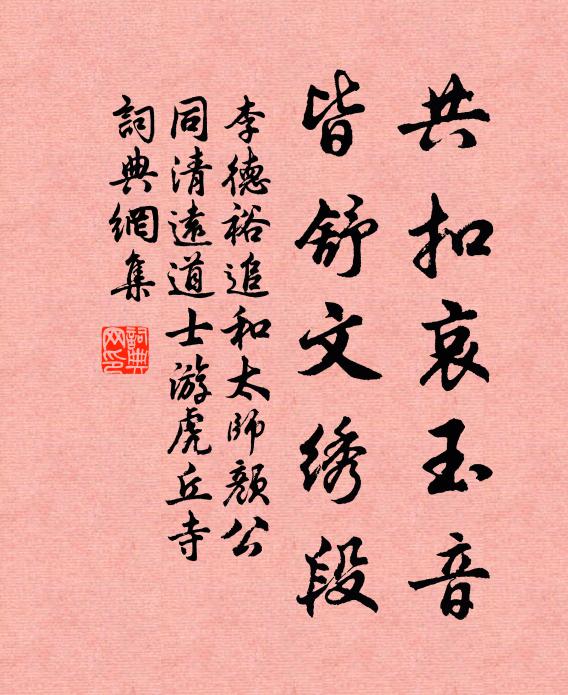 共扣哀玉音
皆舒文绣段
李德裕追和太師顏公
同清遠道士游虎丘寺
詞典網集
詞典网印